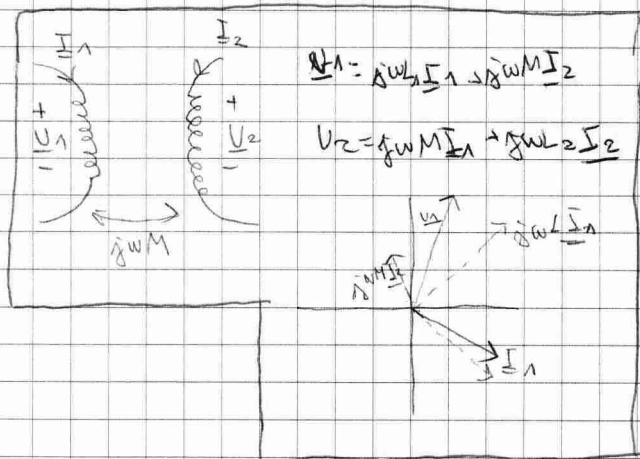 I1
I2
+
U1
-
+
U2
-
jωM
U1 = jωL1 I1 + jωM I2
U2 = jωM I1 + jωL2 I2
U1
jωL I1
jωM I2
I1